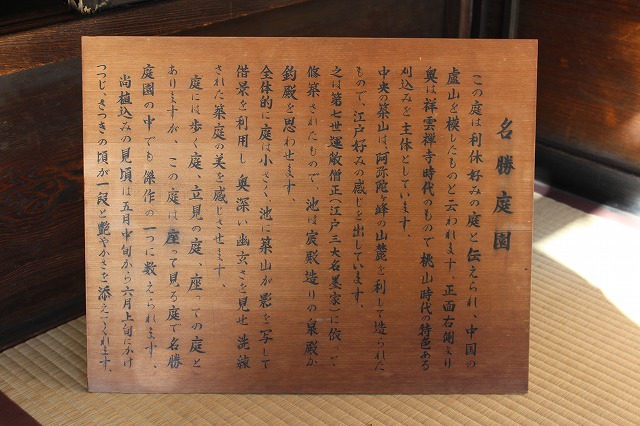 名勝庭園
この庭は利休好みの庭と伝えられ、中国の
盧山を模したものと云われます。正面右側より
奥は祥雲禅寺時代のもので桃山時代の特色ある
刈込みを主体としています。
中央の築山は、阿弥陀ヶ峰の山麓を利して造られた
もので、江戸好みの感じを出しています。
之は第七世運敞僧正(江戸三大名墓家)に依って
修築されたもので、池は宸殿造りの泉殿か
釣殿を思わせます。
全体的に庭は小さく、池に築山が影を写して
借景を利用し奥深い幽玄さを見せ洗練
された築庭の美を感じさせます。
庭には歩く庭、立見の庭、座っての庭と
ありますが、この庭は座って見る庭で名勝
庭園の中でも傑作の一つに数えられます。
尚植込みの見頃は五月中旬から六月上旬にかけ
つつじ、さつきの頃が一段と艶やかさを添えてくれます。